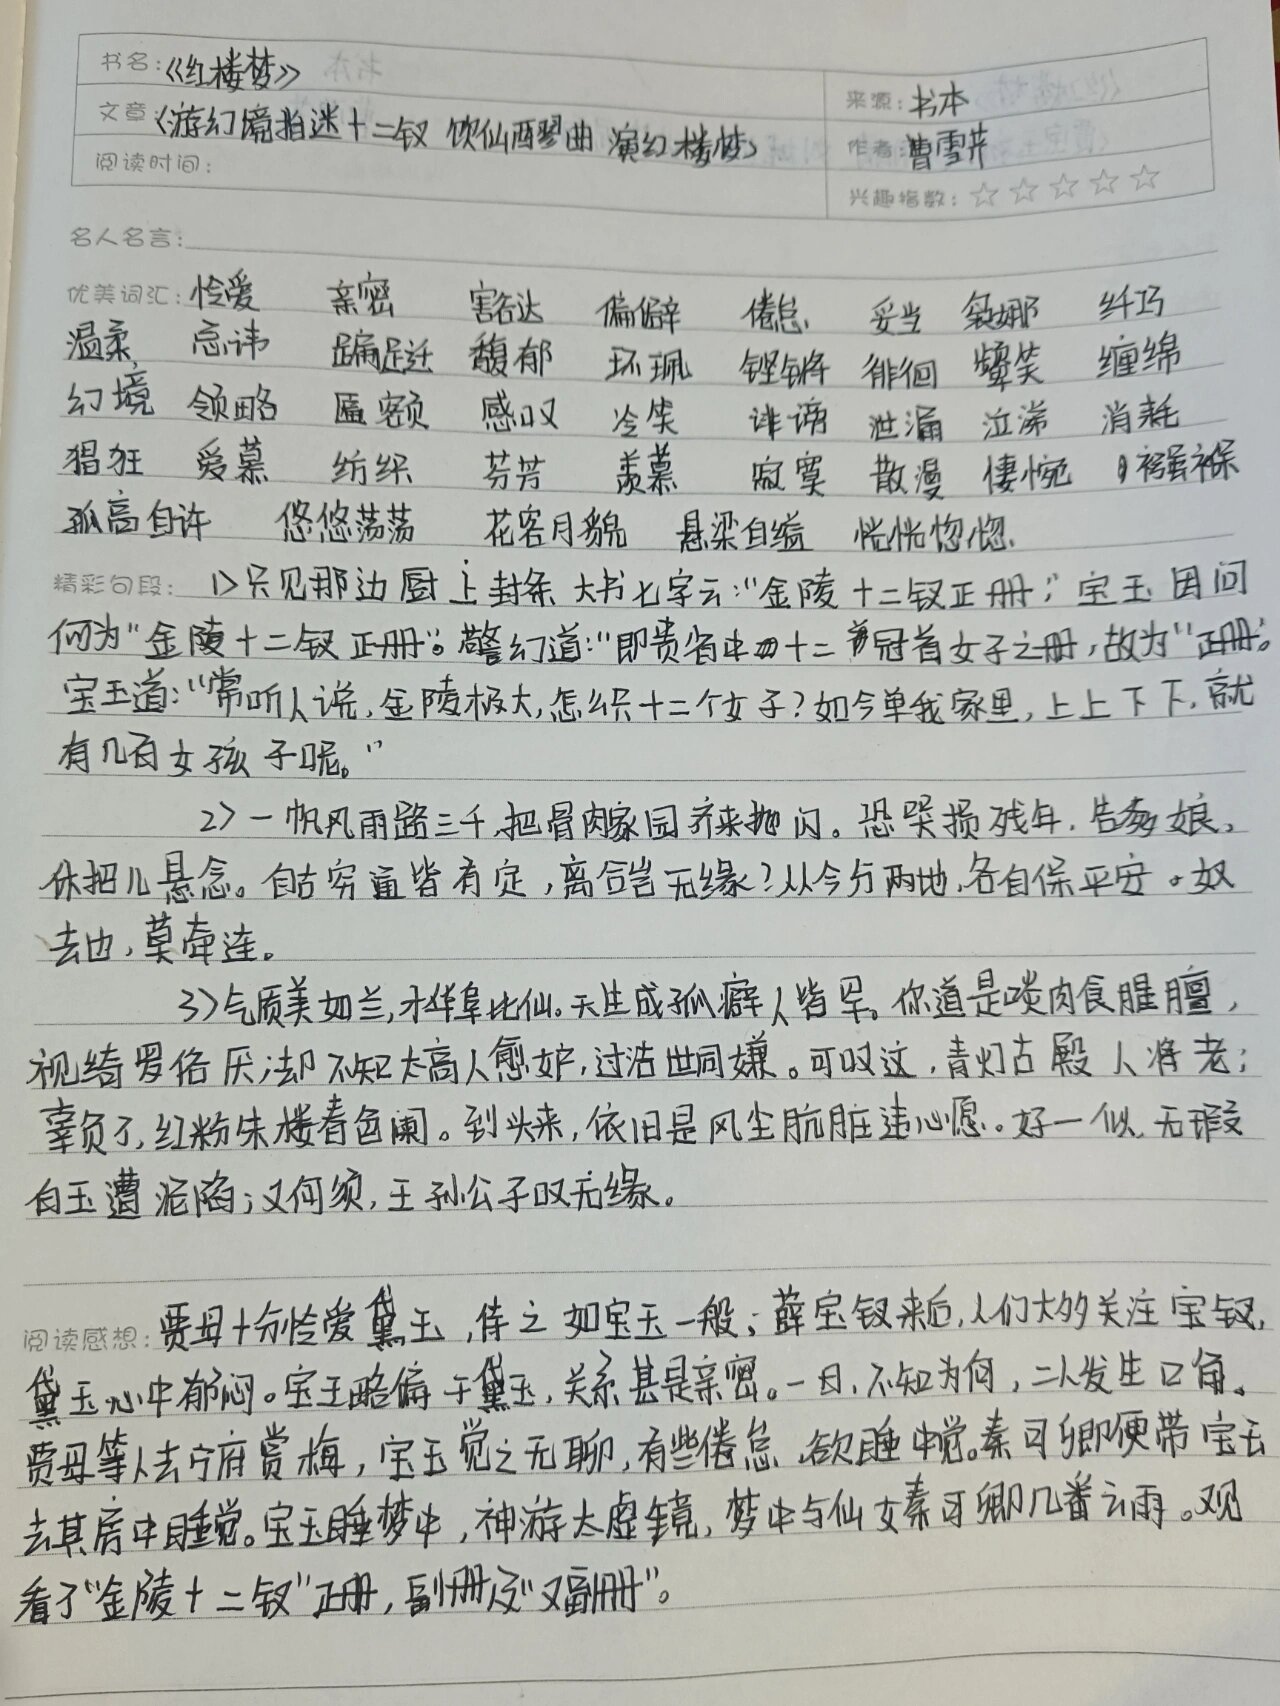 书名:《红楼梦》
来源:书本
文章《游幻境指迷十二钗 饮仙醪曲 演幻楼梦》
作者:曹雪芹
阅读时间:
兴趣指数:☆☆☆☆☆
名人名言:
优美词汇:怜爱 亲密 豁达 偏僻 倦怠 妥当 袅娜 纤巧
温柔 忌讳 蹁跹 馥郁 环珮 铿锵 徘徊 颦笑 缠绵
幻境 领略 匾额 感叹 冷笑 诽谤 泄漏 泣涕 消耗
猖狂 爱慕 纺织 芬芳 羡慕 寂寞 散漫 悽惋 襁褓
孤高自许 悠悠荡荡 花容月貌 悬梁自缢 恍恍惚惚
精彩句段: 1>只见那边厨上封条大书七字云:“金陵十二钗正册;”宝玉因问
何为“金陵十二钗正册”。警幻道:“即贵省中十二冠首女子之册,故为“正册”。
宝玉道:“常听人说,金陵极大,怎么只十二个女子?如今单我家里,上上下下,就
有几百女孩子呢。”
2>一帆风雨路三千,把骨肉家园齐来抛闪。恐哭损残年,告爹娘,
休把儿悬念。自古穷通皆有定,离合岂无缘?从今分两地,各自保平安。奴
去也,莫牵连。
3>气质美如兰,才华阜比仙。天生成孤癖人皆罕。你道是啖肉食腥膻,
视绮罗俗厌;却不知太高人愈妒,过洁世同嫌。可叹这,青灯古殿人将老;
辜负了,红粉朱楼春色阑。到头来,依旧是风尘肮脏违心愿。好一似,无瑕
白玉遭泥陷;又何须,王孙公子叹无缘。
阅读感想: 贾母十分怜爱黛玉,待之如宝玉一般;薛宝钗来后,人们大多关注宝钗,
黛玉心中郁闷。宝玉略偏于黛玉,关系甚是亲密。一日,不知为何,二人发生口角。
贾母等人去宁府赏梅,宝玉觉之无聊,有些倦怠,欲睡中觉。秦可卿便带宝玉
去其房中睡觉。宝玉睡梦中,神游太虚镜,梦中与仙女秦可卿几番云雨。观
看了“金陵十二钗”正册,副册及“又副册”。